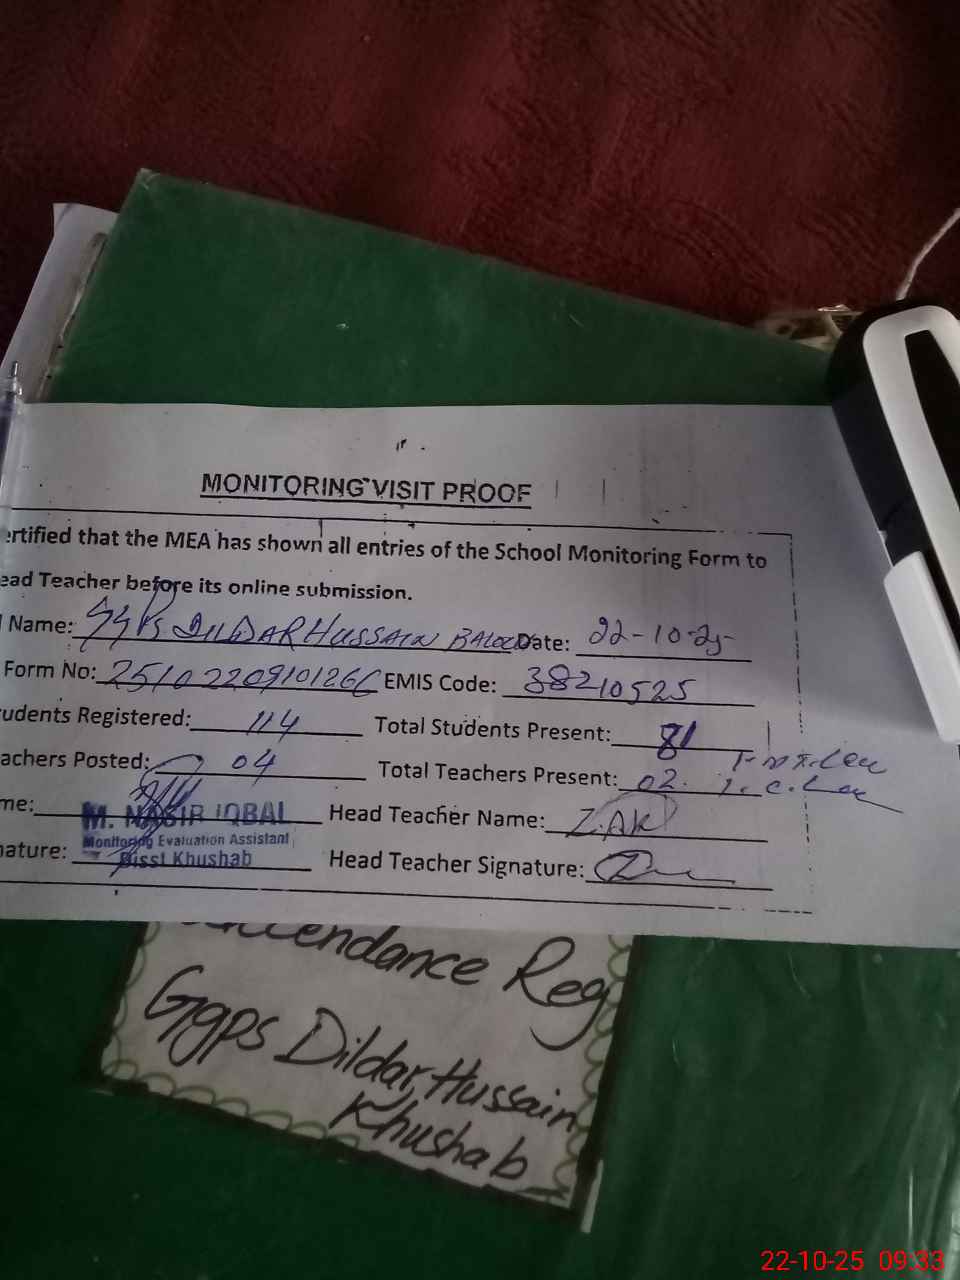 MONITORING VISIT PROOF
ertified that the MEA has shown all entries of the School Monitoring Form to
ead Teacher before its online submission.
Name: GGPS DILDAR HUSSAIN BALOCH Date: 22-10-25
Form No: EMIS Code: 38210525
udents Registered: 114 Total Students Present: 81
achers Posted: 04 Total Teachers Present: 02
me: M. NASIR IQBAL Head Teacher Name:
Monitoring Evaluation Assistant
nature: Disst Khushab Head Teacher Signature:
ttendance Reg
Ggps Dildar Hussain
Khushab
22-10-25 09:33